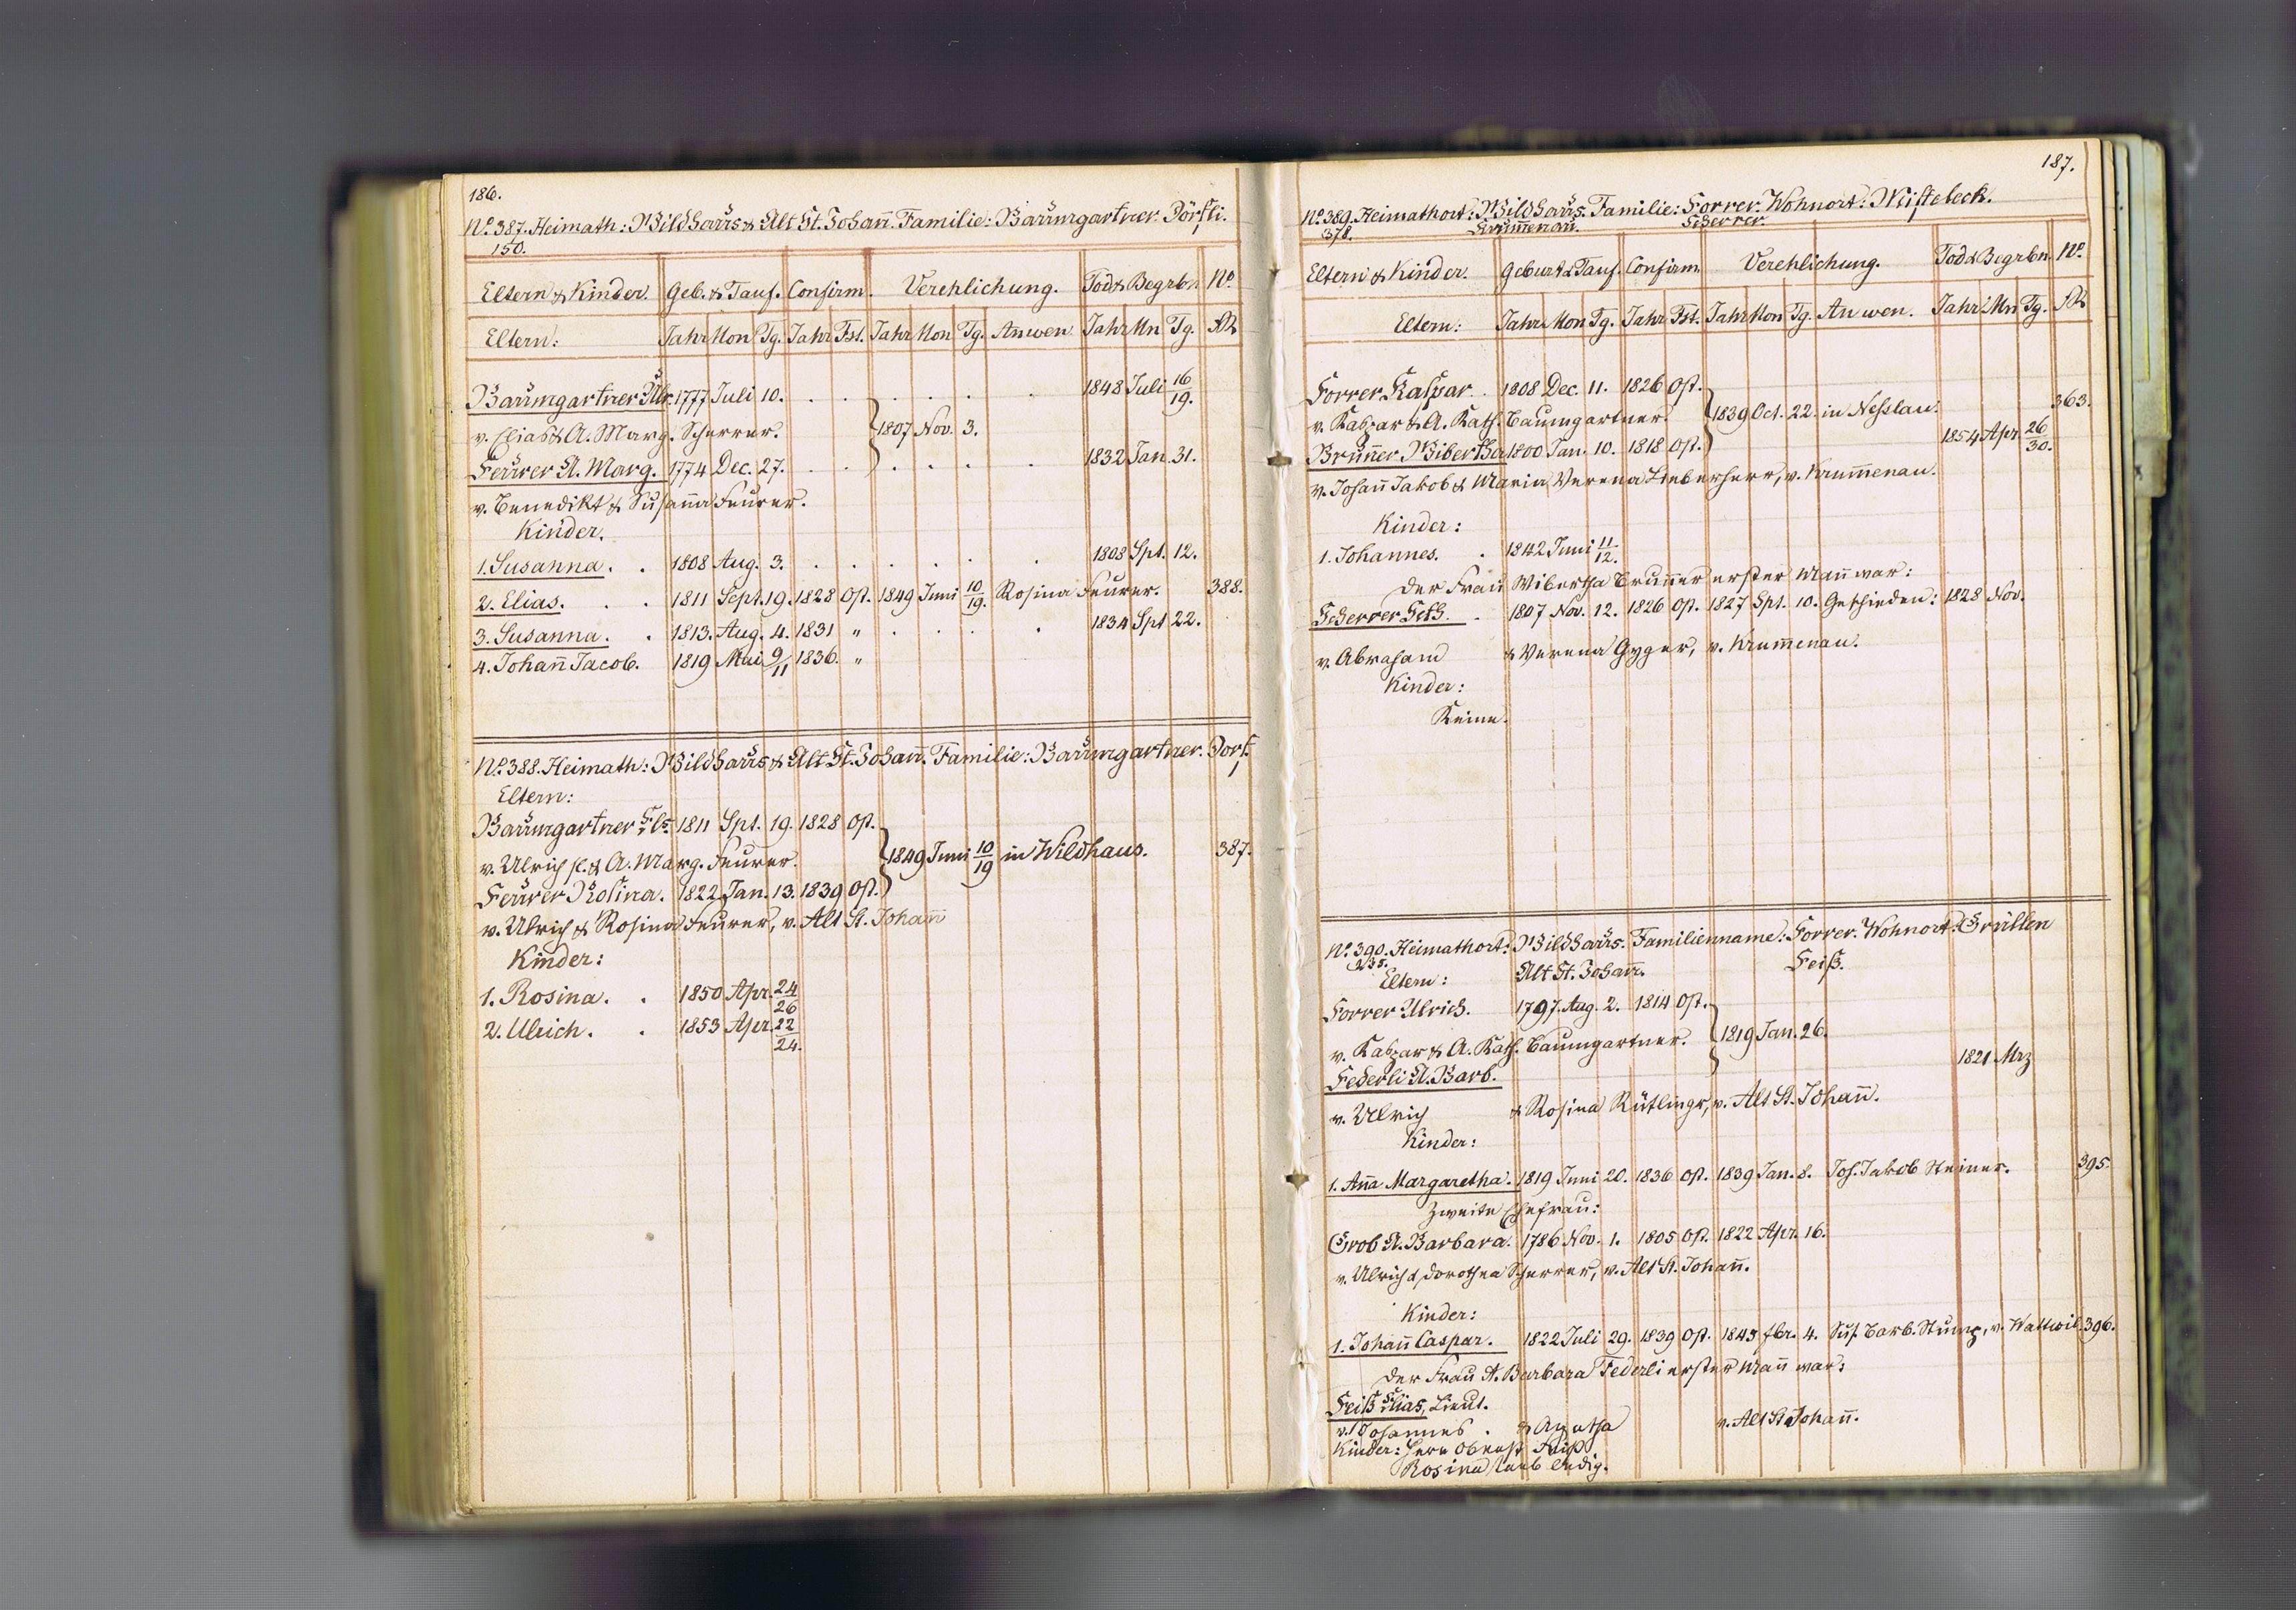 186.
No. 387. Heimath: Wildhaus & Alt St. Johañ. Familie: Baumgartner. Dörfli.
150.
Eltern & Kinder. Geb. & Tauf. Confirm. Verehlichung. Tod & Begrbn No.
Eltern: Jahr Mon Tg. Jahr Fst. Jahr Mon Tg. Añwen. Jahr Mn Tg.
Baumgartner Ulr. 1777 Juli 10. 1848 Juli 16/19.
v. Elias & A. Marg. Scherrer. 1807 Nov. 3.
Feurer A. Marg. 1774 Dec. 27. 1832 Jan. 31.
v. Benedikt & Susaña Feurer.
Kinder.
1. Susanna. 1808 Aug. 3. 1808 Spt. 12.
2. Elias. 1811 Sept. 19. 1828 Ost. 1849 Juni 10/19. Rosina Feurer. 388.
3. Susanna. 1813. Aug. 4. 1831 „ 1834 Spt 22.
4. Johañ Jacob. 1819 Mai 9/11 1836. „
No. 388. Heimath: Wildhaus & Alt St. Johañ. Familie: Baumgartner. Dorf.
Eltern:
Baumgartner Els. 1811 Spt. 19. 1828 Ost.
v. Ulrich sl. & A. Marg. Feurer. 1849 Juni 10/19 in Wildhaus. 387.
Feurer Rosina. 1822 Jan. 13. 1839 Ost.
v. Ulrich & Rosina Feurer, v. Alt St. Johañ
Kinder:
1. Rosina. 1850 Apr. 24/26
2. Ulrich. 1853 Apr. 22/24.
187.
No. 389. Heimathort: Wildhaus. Familie: Forrer. Wohnort: Mistebeck.
378. Krum̃enau. Scherrer.
Eltern & Kinder. Geburt & Tauf. Confirm. Verehlichung. Tod & Begrbn No.
Eltern: Jahr Mon Tg. Jahr Fst. Jahr Mon Tg. Anwen. Jahr Mn Tg.
Forrer Kaspar. 1808 Dec. 11. 1826 Ost.
v. Kaspar & A. Kath. Baumgartner. 1839 Oct. 22. in Nesslau. 363.
Bruñer Wibertha 1800 Jan. 10. 1818 Ost. 1854 Apr. 26/30.
v. Johañ Jakob & Maria Verena Lieberherr, v. Krum̃enau.
Kinder:
1. Johannes. 1842 Juni 11/12.
Der Frau Wibertha Bruñer erster Mañ war:
Scherrer 1807 Nov. 12. 1826 Ost. 1827 Spt. 10. Geschieden: 1828 Nov.
v. Abraham & Verena Gyger, v. Krum̃enau.
Kinder:
Keine.
No. 390. Heimathort: Wildhaus. Familienname: Forrer. Wohnort: Grütlen
Alt St. Johañ. Feiß.
Eltern:
Forrer Ulrich. 1797. Aug. 2. 1814 Ost.
v. Kaspar & A. Kath. Baumgartner. 1819 Jan. 26.
Federli A. Barb. 1821 Mrz
v. Ulrich & Rosina Rütlingr, v. Alt St. Johañ.
Kinder:
1. Aña Margaretha. 1819 Juni 20. 1836 Ost. 1839 Jan. 8. Joh. Jakob Steiner. 395.
Zweite Ehefrau:
Grob A. Barbara. 1786 Nov. 1. 1805 Ost. 1822 Apr. 16.
v. Ulrich & Dorothea Scherrer, v. Alt St. Johañ.
Kinder:
1. Johañ Caspar. 1822 Juli 29. 1839 Ost. 1845 fbr. 4. Sus. Barb. Stump, v. Wattwil. 396.
Der Frau A. Barbara Federli erster Mañ war:
Feiß Elias, Lieut.
v. Johannes. & Agatha v. Alt St. Johañ.
Kinder: Herr Oberst Feiß
Rosina starb ledig.